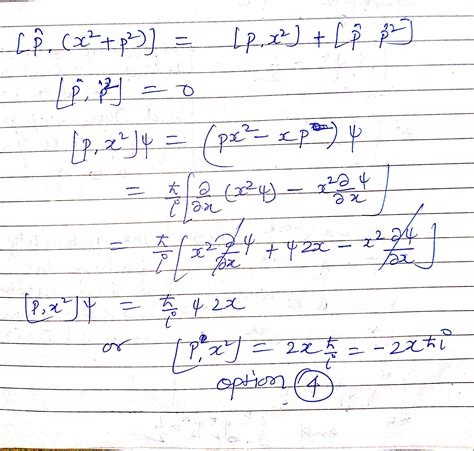 [p̂, (x²+p²)] = [p, x²] + [p̂ p̂²]
[p̂, p̂²] = 0
[p, x²]ψ = (px² - xp²) ψ
= ħ/i [∂/∂x (x²ψ) - x²∂ψ/∂x]
= ħ/i [x² ∂ψ/∂x + ψ2x - x² ∂ψ/∂x]
[p, x²]ψ = ħ/i ψ 2x
or [p, x²] = 2x ħ/i = -2xħi
option 4